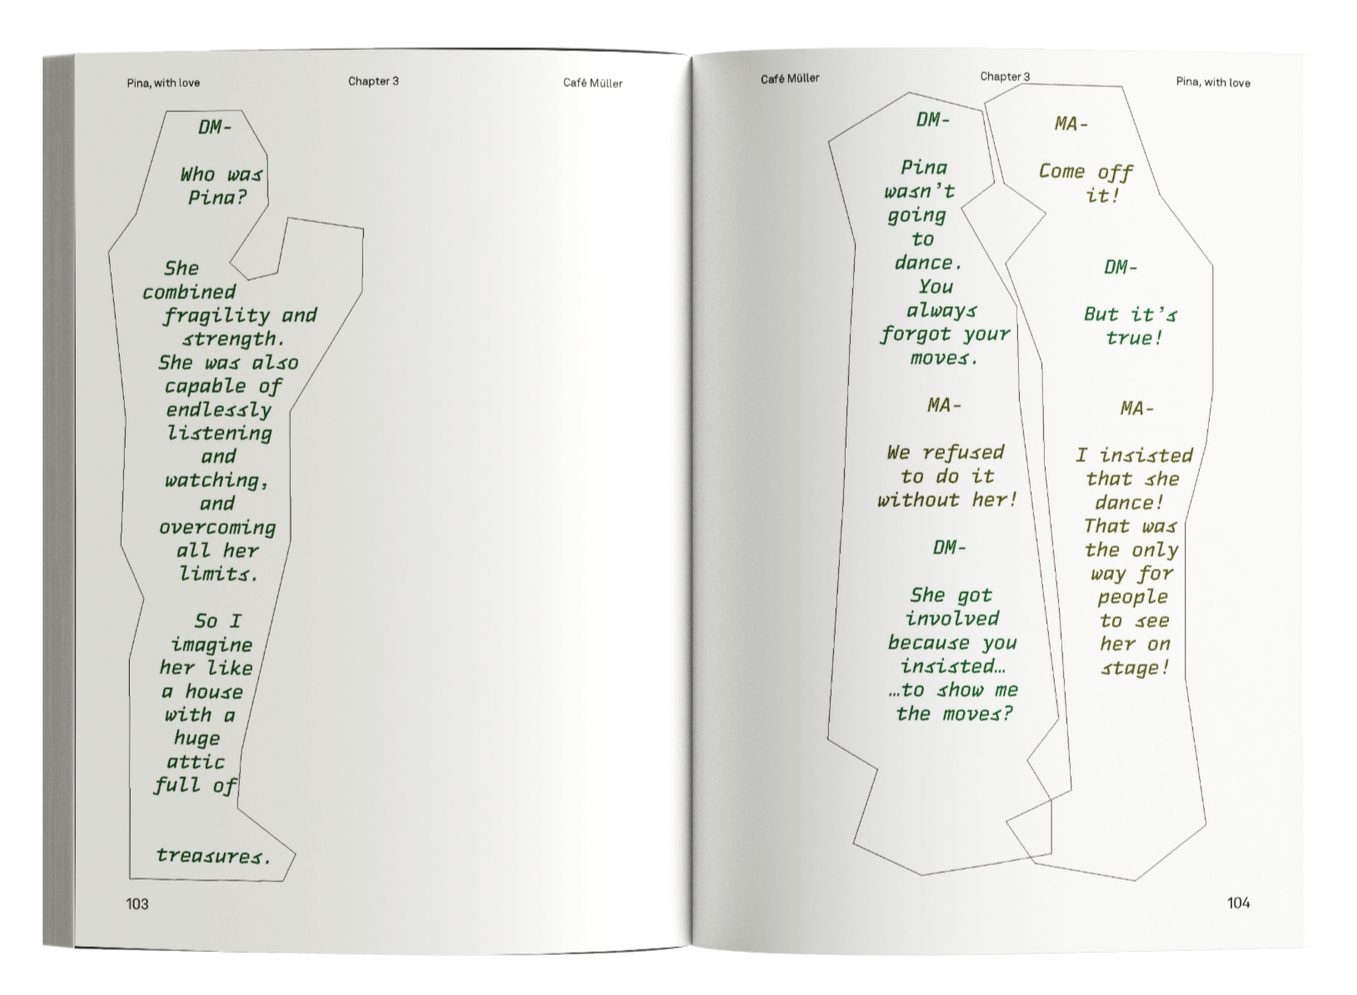 Pina, with love
Chapter 3
Café Müller
DM-
Who was
Pina?
She
combined
fragility and
strength.
She was also
capable of
endlessly
listening
and
watching,
and
overcoming
all her
limits.
So I
imagine
her like
a house
with a
huge
attic
full of
treasures.
103
Café Müller
Chapter 3
Pina, with love
DM-
Pina
wasn't
going
to
dance.
You
always
forgot your
moves.
MA-
We refused
to do it
without her!
DM-
She got
involved
because you
insisted…
…to show me
the moves?
MA-
Come off
it!
DM-
But it's
true!
MA-
I insisted
that she
dance!
That was
the only
way for
people
to see
her on
stage!
104